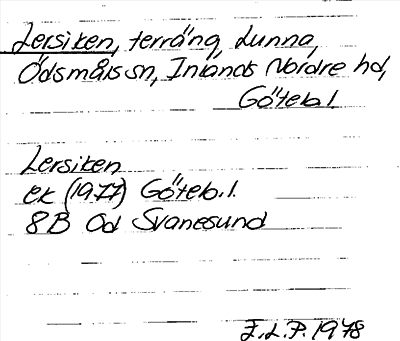 Lersiken, terräng, Lunna,
Ödsmåls sn, Inlands Nordre hd,
Göteb.l.
Lersiken
ek (1977) Göteb.l.
8B Od Svanesund
E.L.P. 1978